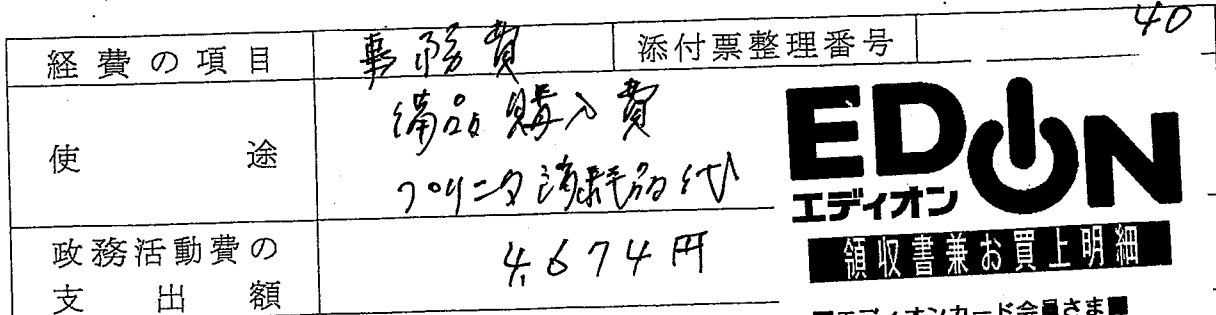 経費の項目 事務費 添付票整理番号 40
使途 備品購入費
プリンタ消耗品代
政務活動費の支出額 4,674円
EDION
エディオン
領収書兼お買上明細
■エディオンカード会員さま■